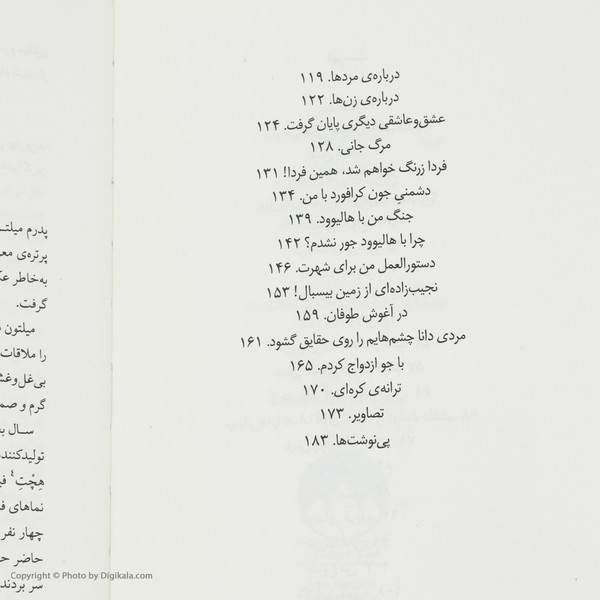 درباره‌ی مردها. ۱۱۹
درباره‌ی زن‌ها. ۱۲۲
عشق‌وعاشقی دیگری پایان گرفت. ۱۲۴
مرگ جانی. ۱۲۸
فردا زرنگ خواهم شد، همین فردا! ۱۳۱
دشمنیِ جون کرافورد با من. ۱۳۴
جنگ من با هالیوود. ۱۳۹
چرا با هالیوود جور نشدم؟ ۱۴۲
دستورالعمل من برای شهرت. ۱۴۶
نجیب‌زاده‌ای از زمین بیسبال! ۱۵۳
در آغوش طوفان. ۱۵۹
مردی دانا چشم‌هایم را روی حقایق گشود. ۱۶۱
با جو ازدواج کردم. ۱۶۵
ترانه‌ی کره‌ای. ۱۷۰
تصاویر. ۱۷۳
پی‌نوشت‌ها. ۱۸۳
پدرم
پرتره‌ی
به‌خاطر
گرفت.
میلتون
را ملاقات
بی‌غل‌وغش
گرم و
سال
تولیدکننده
هِچْتِ۴
نماهای
چهار نفر
حاضر
سر بردند
Copyright © Photo by Digikala.com